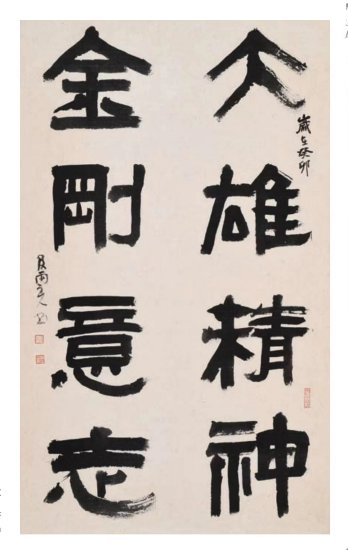 大雄精神
歲在癸卯
金剛意志